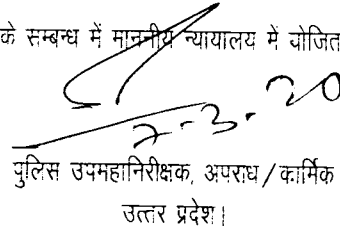 के सम्बन्ध में माननीय न्यायालय में योजित
7-3-20
पुलिस उपमहानिरीक्षक, अपराध/कार्मिक
उत्तर प्रदेश।